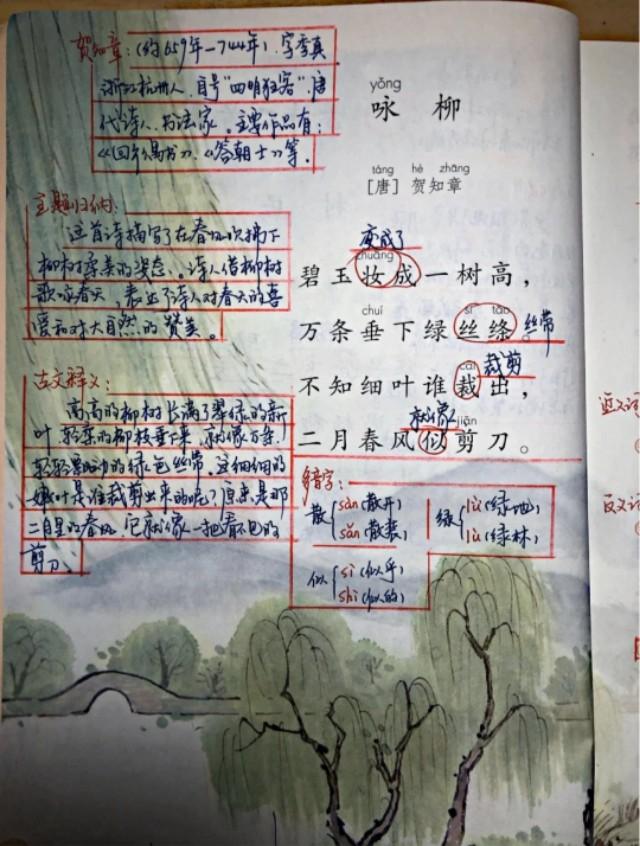 贺知章：(约659年—744年)，字季真
浙江杭州人，自号“四明狂客”，唐
代诗人、书法家。主要作品有：
《回乡偶书》、《答朝士》等。
主题归纳：
这首诗描写了在春风吹拂下
柳树柔美的姿态。诗人借柳树
歌咏春天，表达了诗人对春天的喜
爱和对大自然的赞美。
古文释义：
高高的柳树长满了翠绿的新
叶，轻柔的柳枝垂下来，就像万条
轻轻飘动的绿色丝带。这细细的
嫩叶是谁裁剪出来的呢？原来是那
二月里的春风，它就像一把看不见的
剪刀。
yǒng
咏 柳
táng hè zhāng
［唐］贺知章
变成了
zhuāng
碧玉妆成一树高，
chuí sī tāo
万条垂下绿丝绦。丝带
cái 裁剪
不知细叶谁裁出，
就像 jiǎn
二月春风似剪刀。
多音字：
散 sàn(散开)
sǎn(散装)
绿 lǜ(绿地)
lù(绿林)
似 sì(似乎)
shì(似的)
近义词
反义词